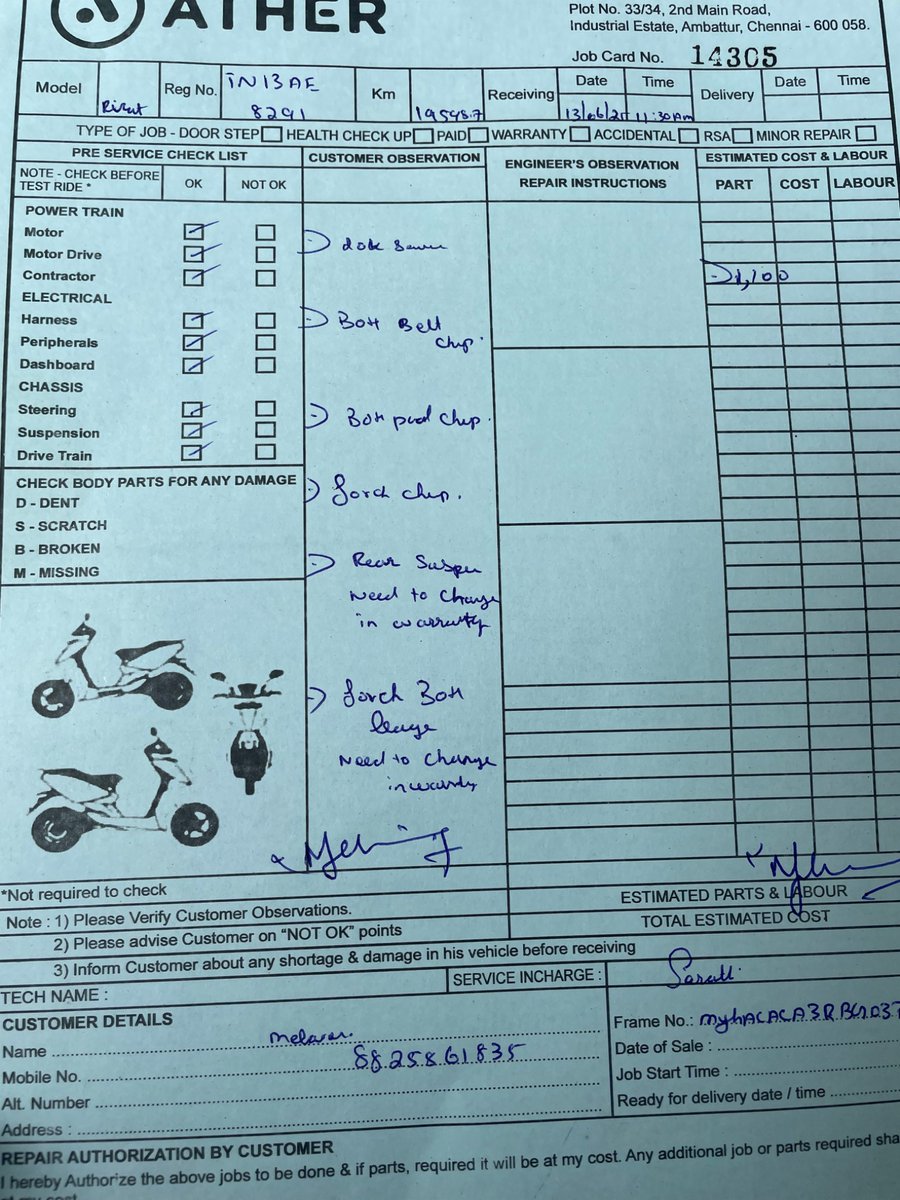 ATHER
Plot No. 33/34, 2nd Main Road,
Industrial Estate, Ambattur, Chennai - 600 058.
Job Card No. 14305
Model Reg No. TN13AE 8291 Km 19598.7 Receiving Date Time 11:30Am Delivery Date Time
TYPE OF JOB - DOOR STEP HEALTH CHECK UP PAID WARRANTY ACCIDENTAL RSA MINOR REPAIR
PRE SERVICE CHECK LIST CUSTOMER OBSERVATION ENGINEER'S OBSERVATION REPAIR INSTRUCTIONS ESTIMATED COST & LABOUR
NOTE - CHECK BEFORE TEST RIDE * OK NOT OK PART COST LABOUR
POWER TRAIN
Motor
Motor Drive
Contractor
1,100
ELECTRICAL
Harness
Both Belt
Peripherals
Dashboard
CHASSIS
Steering
Suspension
Drive Train
CHECK BODY PARTS FOR ANY DAMAGE
D - DENT
S - SCRATCH
B - BROKEN
M - MISSING
Rear Suspen
Need to change
in warrutty
Need to change
*Not required to check
ESTIMATED PARTS & LABOUR
Note : 1) Please Verify Customer Observations.
TOTAL ESTIMATED COST
2) Please advise Customer on "NOT OK" points
3) Inform Customer about any shortage & damage in his vehicle before receiving
TECH NAME :
SERVICE INCHARGE :
CUSTOMER DETAILS
Name
Mobile No. 8825861835
Alt. Number
Address :
Frame No.:
Date of Sale :
Job Start Time :
Ready for delivery date / time
REPAIR AUTHORIZATION BY CUSTOMER
I hereby Authorize the above jobs to be done & if parts, required it will be at my cost. Any additional job or parts required sha